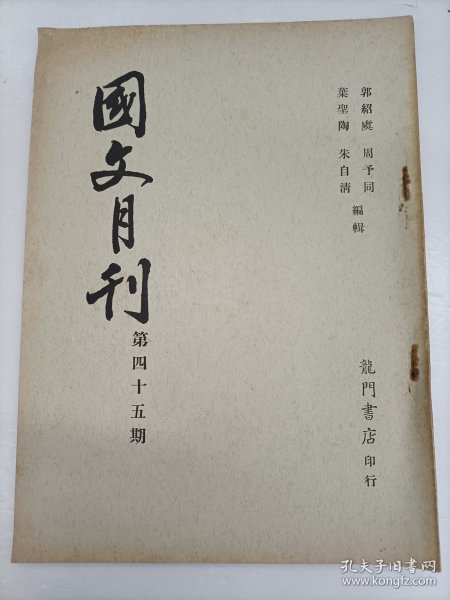 郭紹虞 周予同
葉聖陶 朱自清 編輯
國文月刊
第四十五期
龍門書店 印行
孔夫子旧书网
www.kongfz.com